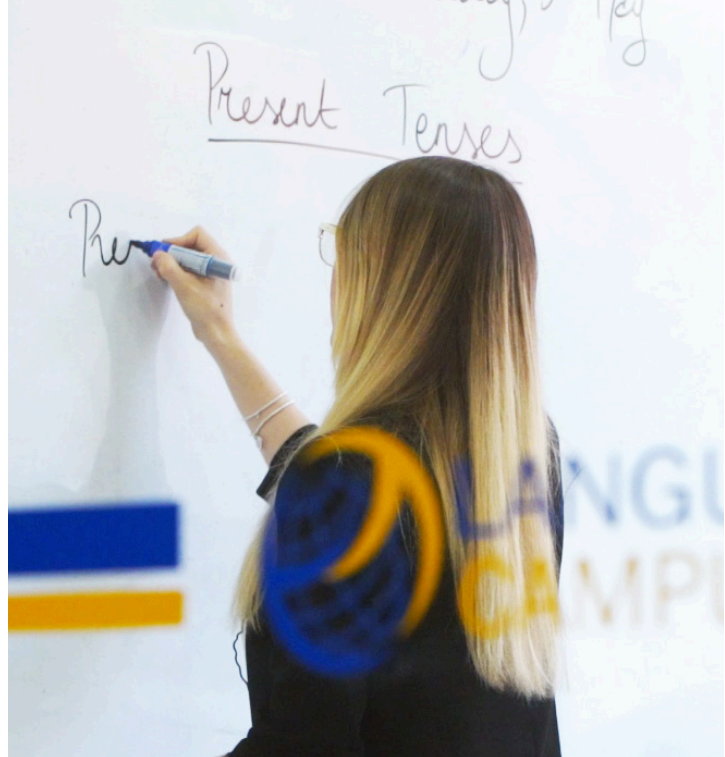 Present Tenses
Pre
LANGU
CAMPU